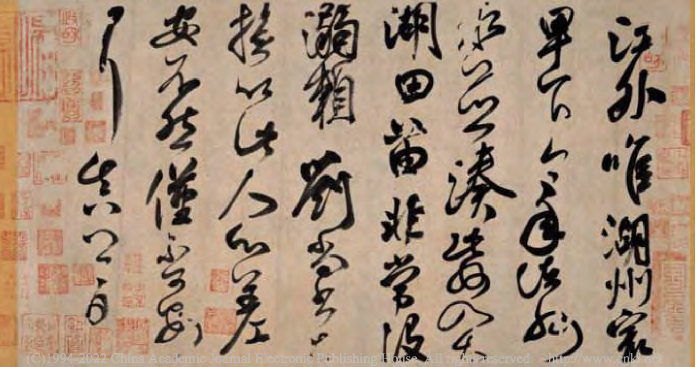 江外唯湖州最
卑下今年諸州
水並湊此州入太
湖田苗非常没
溺賴劉尚書与
拯以此人心差
安不然僅不可
耳真卿白
(C)1994-2022 China Academic Journal Electronic Publishing House. All rights reserved. http://www.cnki.net